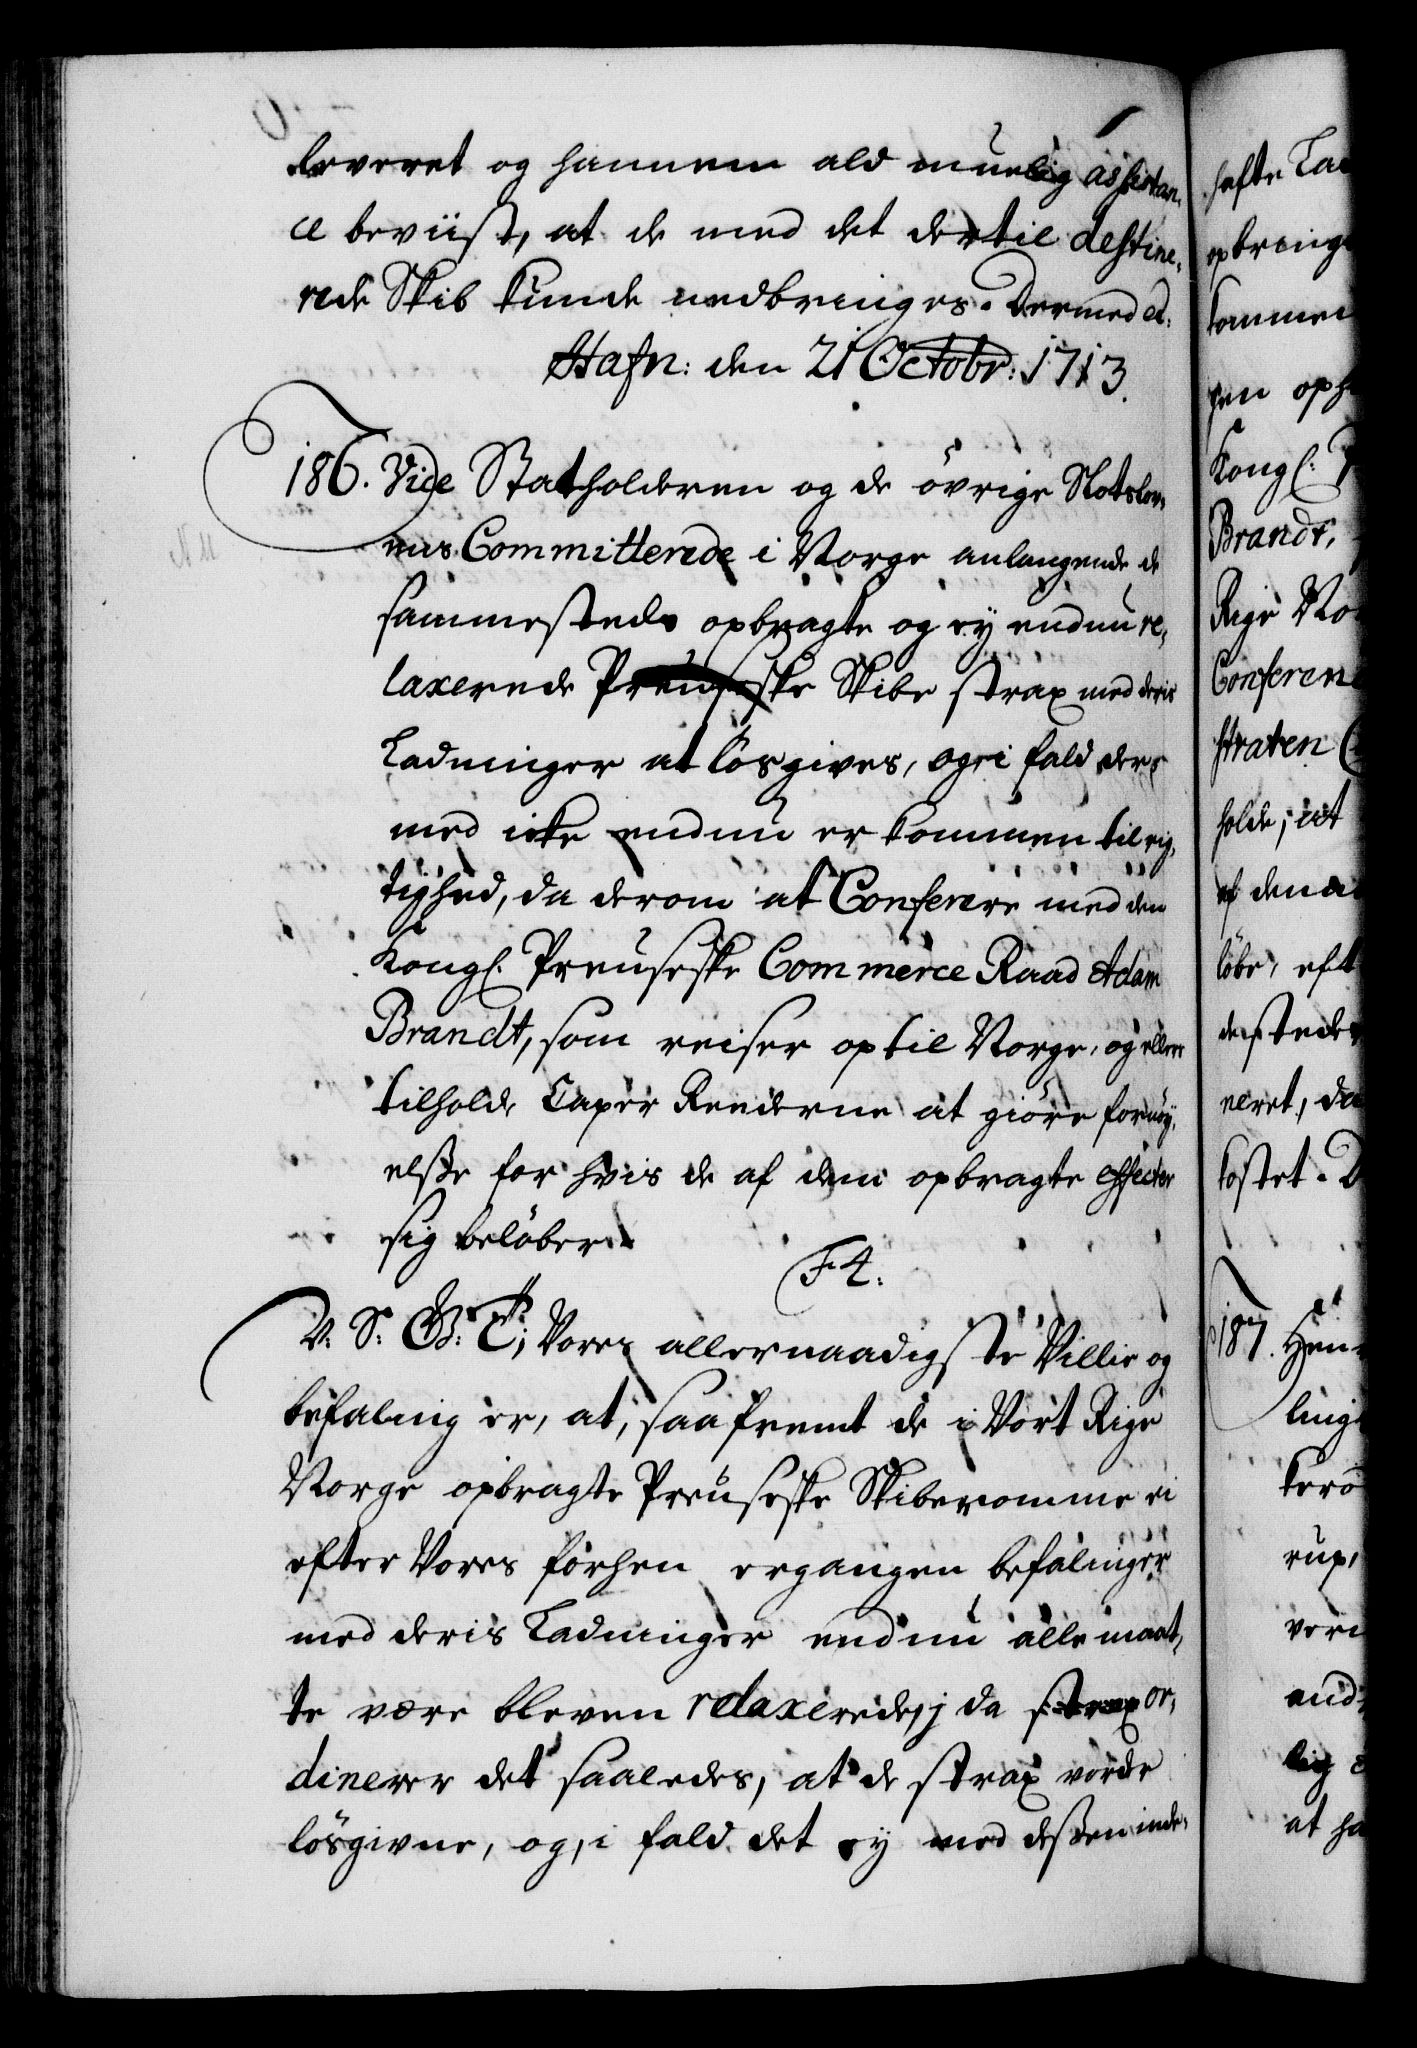 leveret og hannem ald muelig assistan,
ce beviist, at de med det dertil destine,
rede Skib kunde nedbringes. Dermed et.
Hafn: den 21 Octobr: 1713.
186. Vice Statholderen og de övrige Slotslov,
ens Committerede i Norge anlangende de
sammesteds opbragte og ey endnu re,
laxerede Preuseske Skibe strax med deris
Ladninger at lösgives, og i fald der,
med icke endnu er kommen til rig,
tighed, da derom at Conferere med den
Kongl. Preuseske Commerce Raad Adam
Brandt, som reiser op til Norge, og ellers
tilholde Caper Reederne at giöre fornöy,
elsze for hvis de af dem opbragte effecter
sig belöber.
F 4.
V. S. G. T; Vores allernaadigste Villie og
befaling er, at, saafremt de i Vort Rige
Norge opbragte Preuseske Skiberomme ei
efter Vores forhen ergangen befalinger
med deris Ladninger endnu alle maat,
te være bleven relaxerede, j da strax or,
dinerer det saaledes, at de strax vorde
lösgivne, og, i fald det ey med deszen inde,
hafte La
opbringe
kommen
hen oph
Kongl. P
Brandt,
Rige No
Conferen
straten
holde, at
af dem
löbe, eft
desteder
neret, da
kostet. D
187. Hen
ling
rup,
and
lig
at ha